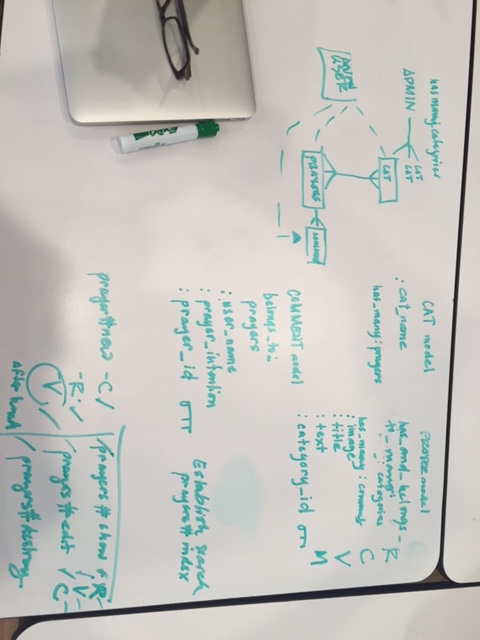 has many: categories
ADMIN
CAT
CAT
CAT
PRAYERS
comment
CAT model
: cat_name
has_many: prayers
PRAYER model
has_and_belongs-
to_many:
categories
has_many: comments
: image
: title
: text
: category_id
R
C
V
M
COMMENT model
belongs_to:
prayers
: user_name
: prayer_intention
: prayer_id
Establish search
prayers#index
prayer#new
- C ✓
- R: ✓
V
after hand
prayers # show
R
V -
prayers # edit
C -
prayers # destroy
EXPO